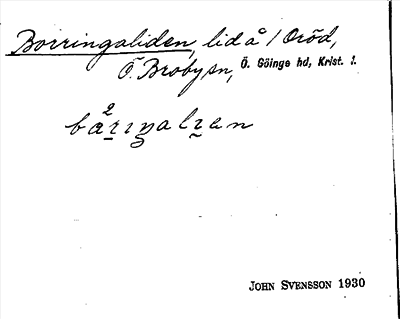 Borringaliden, lid å / Oröd,
Ö. Broby sn, Ö. Göinge hd, Krist. l.
JOHN SVENSSON 1930